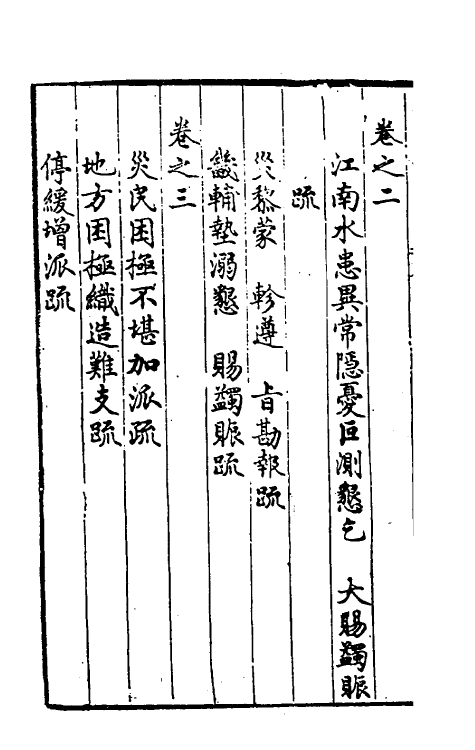 卷之二
江南水患異常隱憂叵測懇乞 大賜蠲賑
疏
災黎蒙 軫遵 旨勘報疏
畿輔墊溺懇 賜蠲賑疏
卷之三
災民困極不堪加派疏
地方困極織造難支疏
停緩增派疏